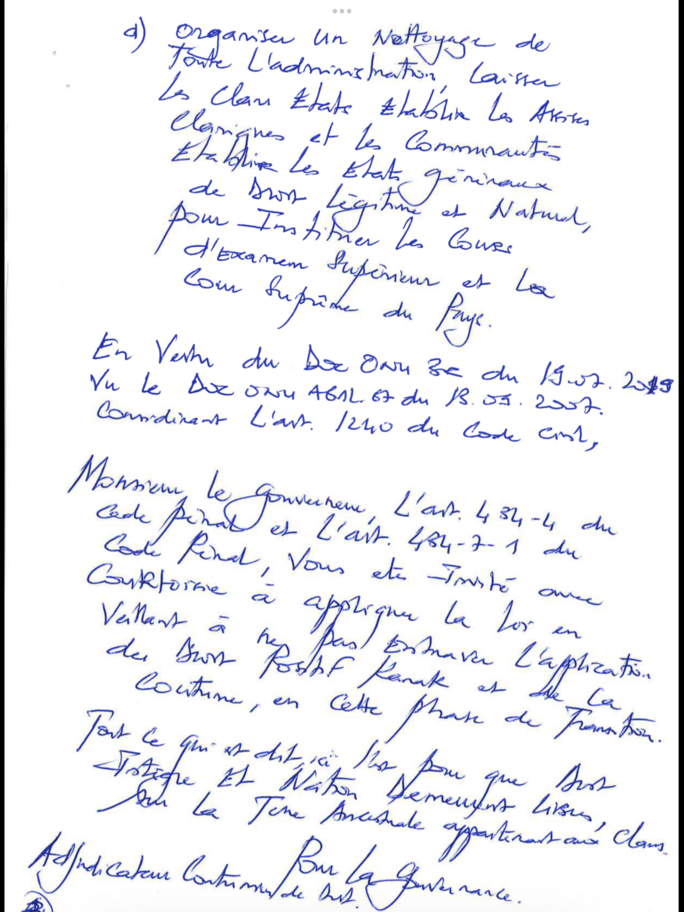 d) Organiser un Nettoyage de
Toute L'administration, Laisser
les Clans Etats Etablir les Assises
Claniques et les Communautés
Etablir les Etats généraux
de Droit légitime et Naturel,
pour Instituer les Cours
d'Examen Supérieur et la
Cour Suprême du Pays.
En Vertu du Doc ONU du 19.07.2019
Vu le Doc ONU A61L.67 du 13.09.2007.
Considérant L'art. 1240 du Code Civil,
Monsieur le Gouverneur, L'art. 434-4 du
Code pénal et L'art. 434-7-1 du
Code Pénal, Vous etes Invité avec
Courtoisie à appliquer la Loi en
Veillant à ne pas Entraver L'application
du Droit Positif Kanak et de la
Coutume, en cette phase de Transition.
Tout ce qui est dit, ici l'est pour que Droit
Intègre Et Nation Demeurent Libres,
sur la Terre Ancestrale appartenant aux Clans.
Pour La Gouvernance.
Adjudicateur Coutumier de Droit.